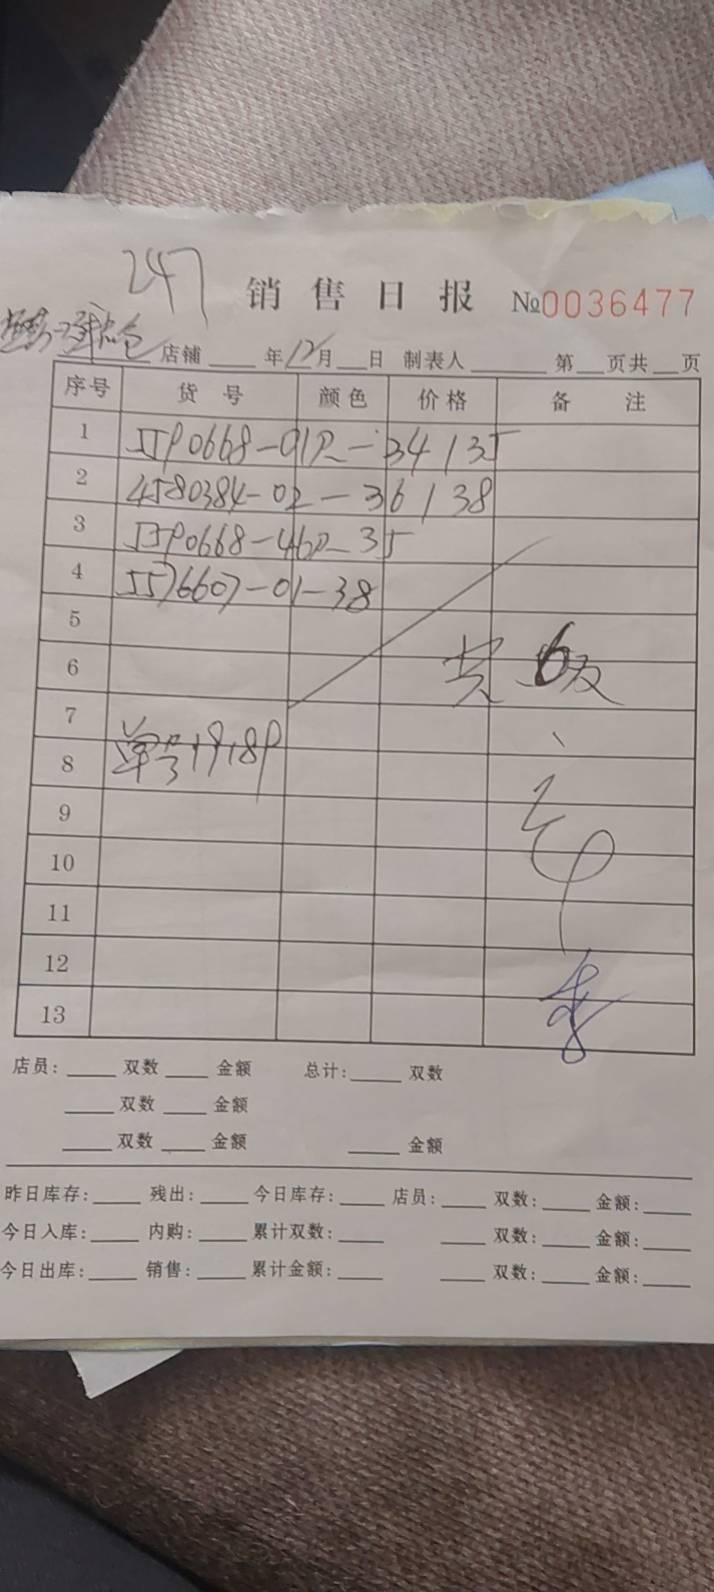 247
销售日报 №0036477
店铺 年12月 日 制表人 第 页共 页
序号 货号 颜色 价格 备注
1 JJP0668-01P-34/35
2 4J80384-02-36/38
3 JJP0668-46P-35
4 JJ76607-01-38
5
6 共6双
7
8 单号
9
10
11
12
13
店员: 双数 金额 总计: 双数
双数 金额
双数 金额 金额
昨日库存: 残出: 今日库存: 店员: 双数: 金额:
今日入库: 内购: 累计双数: 双数: 金额:
今日出库: 销售: 累计金额: 双数: 金额: